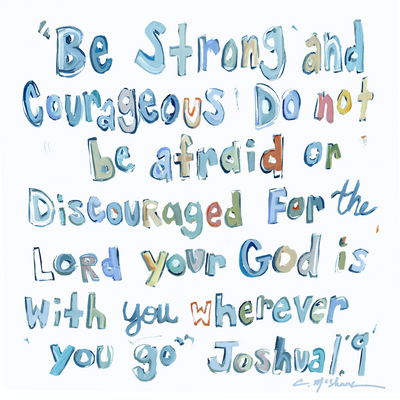 "Be Strong and
Courageous Do not
be afraid or
Discouraged For the
Lord your God is
with you wherever
you go" Joshua 1:9
C. McShane